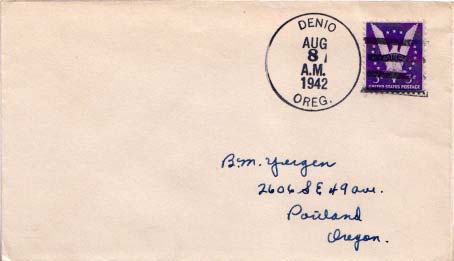 DENIO
AUG
8
A.M.
1942
OREG.
3¢ 3¢
UNITED STATES POSTAGE
B.M. Yergen
2606 S E 49 ave.
Portland
Oregon.